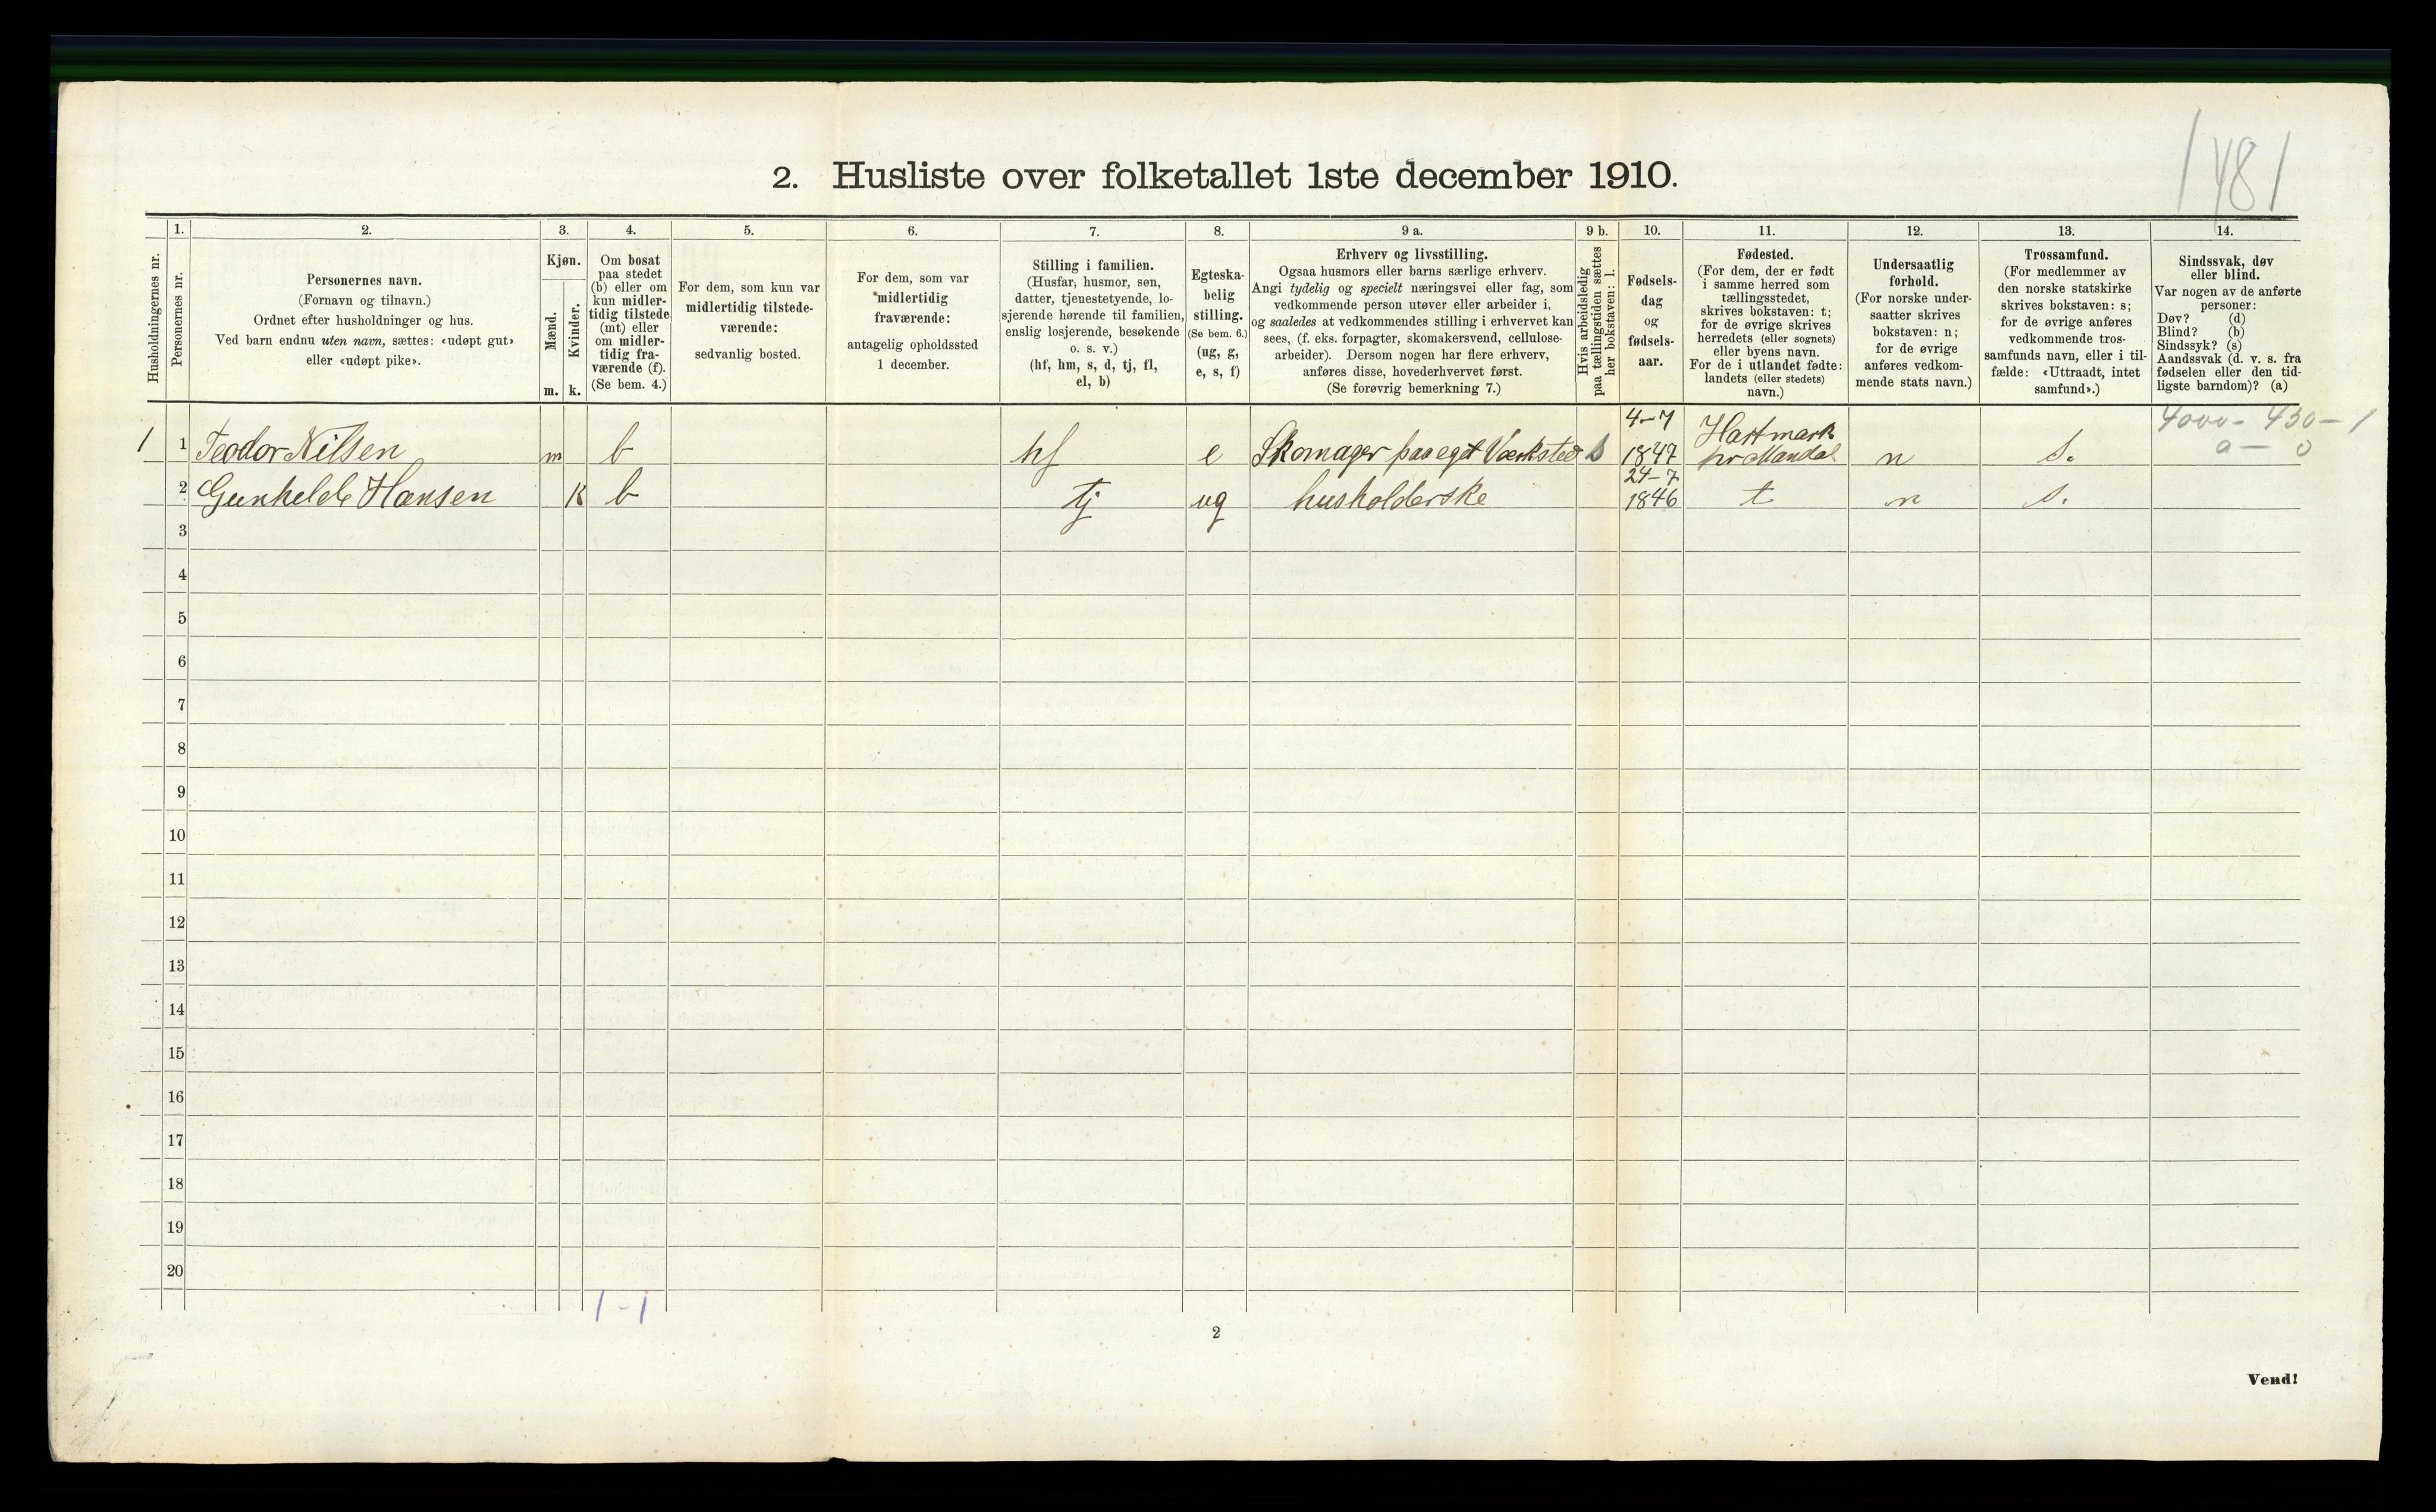 1481
2. Husliste over folketallet 1ste december 1910.
Husholdningernes nr.
1.
Personernes nr.
2.
Personernes navn.
(Fornavn og tilnavn.)
Ordnet efter husholdninger og hus.
Ved barn endnu uten navn, sættes: «udøpt gut»
eller «udøpt pike».
3.
Kjøn.
Mænd.
Kvinder.
m. k.
4.
Om bosat
paa stedet
(b) eller om
kun midler-
tidig tilstede
(mt) eller
om midler-
tidig fra-
værende (f).
(Se bem. 4.)
5.
For dem, som kun var
midlertidig tilstede-
værende:
sedvanlig bosted.
6.
For dem, som var
midlertidig
fraværende:
antagelig opholdssted
1 december.
7.
Stilling i familien.
(Husfar, husmor, søn,
datter, tjenestetyende, lo-
sjerende hørende til familien,
enslig losjerende, besøkende
o. s. v.)
(hf, hm, s, d, tj, fl,
el, b)
8.
Egteska-
belig
stilling.
(Se bem. 6.)
(ug, g,
e, s, f)
9 a.
Erhverv og livsstilling.
Ogsaa husmors eller barns særlige erhverv.
Angi tydelig og specielt næringsvei eller fag, som
vedkommende person utøver eller arbeider i,
og saaledes at vedkommendes stilling i erhvervet kan
sees, (f. eks. forpagter, skomakersvend, cellulose-
arbeider). Dersom nogen har flere erhverv,
anføres disse, hovederhvervet først.
(Se forøvrig bemerkning 7.)
9 b.
Hvis arbeidsledig
paa tællingstiden sættes
her bokstaven: l.
10.
Fødsels-
dag
og
fødsels-
aar.
11.
Fødested.
(For dem, der er født
i samme herred som
tællingsstedet,
skrives bokstaven: t;
for de øvrige skrives
herredets (eller sognets)
eller byens navn.
For de i utlandet fødte:
landets (eller stedets)
navn.)
12.
Undersaatlig
forhold.
(For norske under-
saatter skrives
bokstaven: n;
for de øvrige
anføres vedkom-
mende stats navn.)
13.
Trossamfund.
(For medlemmer av
den norske statskirke
skrives bokstaven: s;
for de øvrige anføres
vedkommende tros-
samfunds navn, eller i til-
fælde: «Uttraadt, intet
samfund».)
14.
Sindssvak, døv
eller blind.
Var nogen av de anførte
personer:
Døv? (d)
Blind? (b)
Sindssyk? (s)
Aandssvak (d. v. s. fra
fødselen eller den tid-
ligste barndom)? (a)
4-7 Hartmark 4000 - 430 - 1
1 1 Teodor Nilsen m b hf e Skomager paa eget Værksted 1847 nr Mandal n s. a - 0
24-7
2 Gunhelde Hansen K b tj ug husholderske 1846 t n s.
3
4
5
6
7
8
9
10
11
12
13
14
15
16
17
18
19
20
1 - 1
2
Vend!